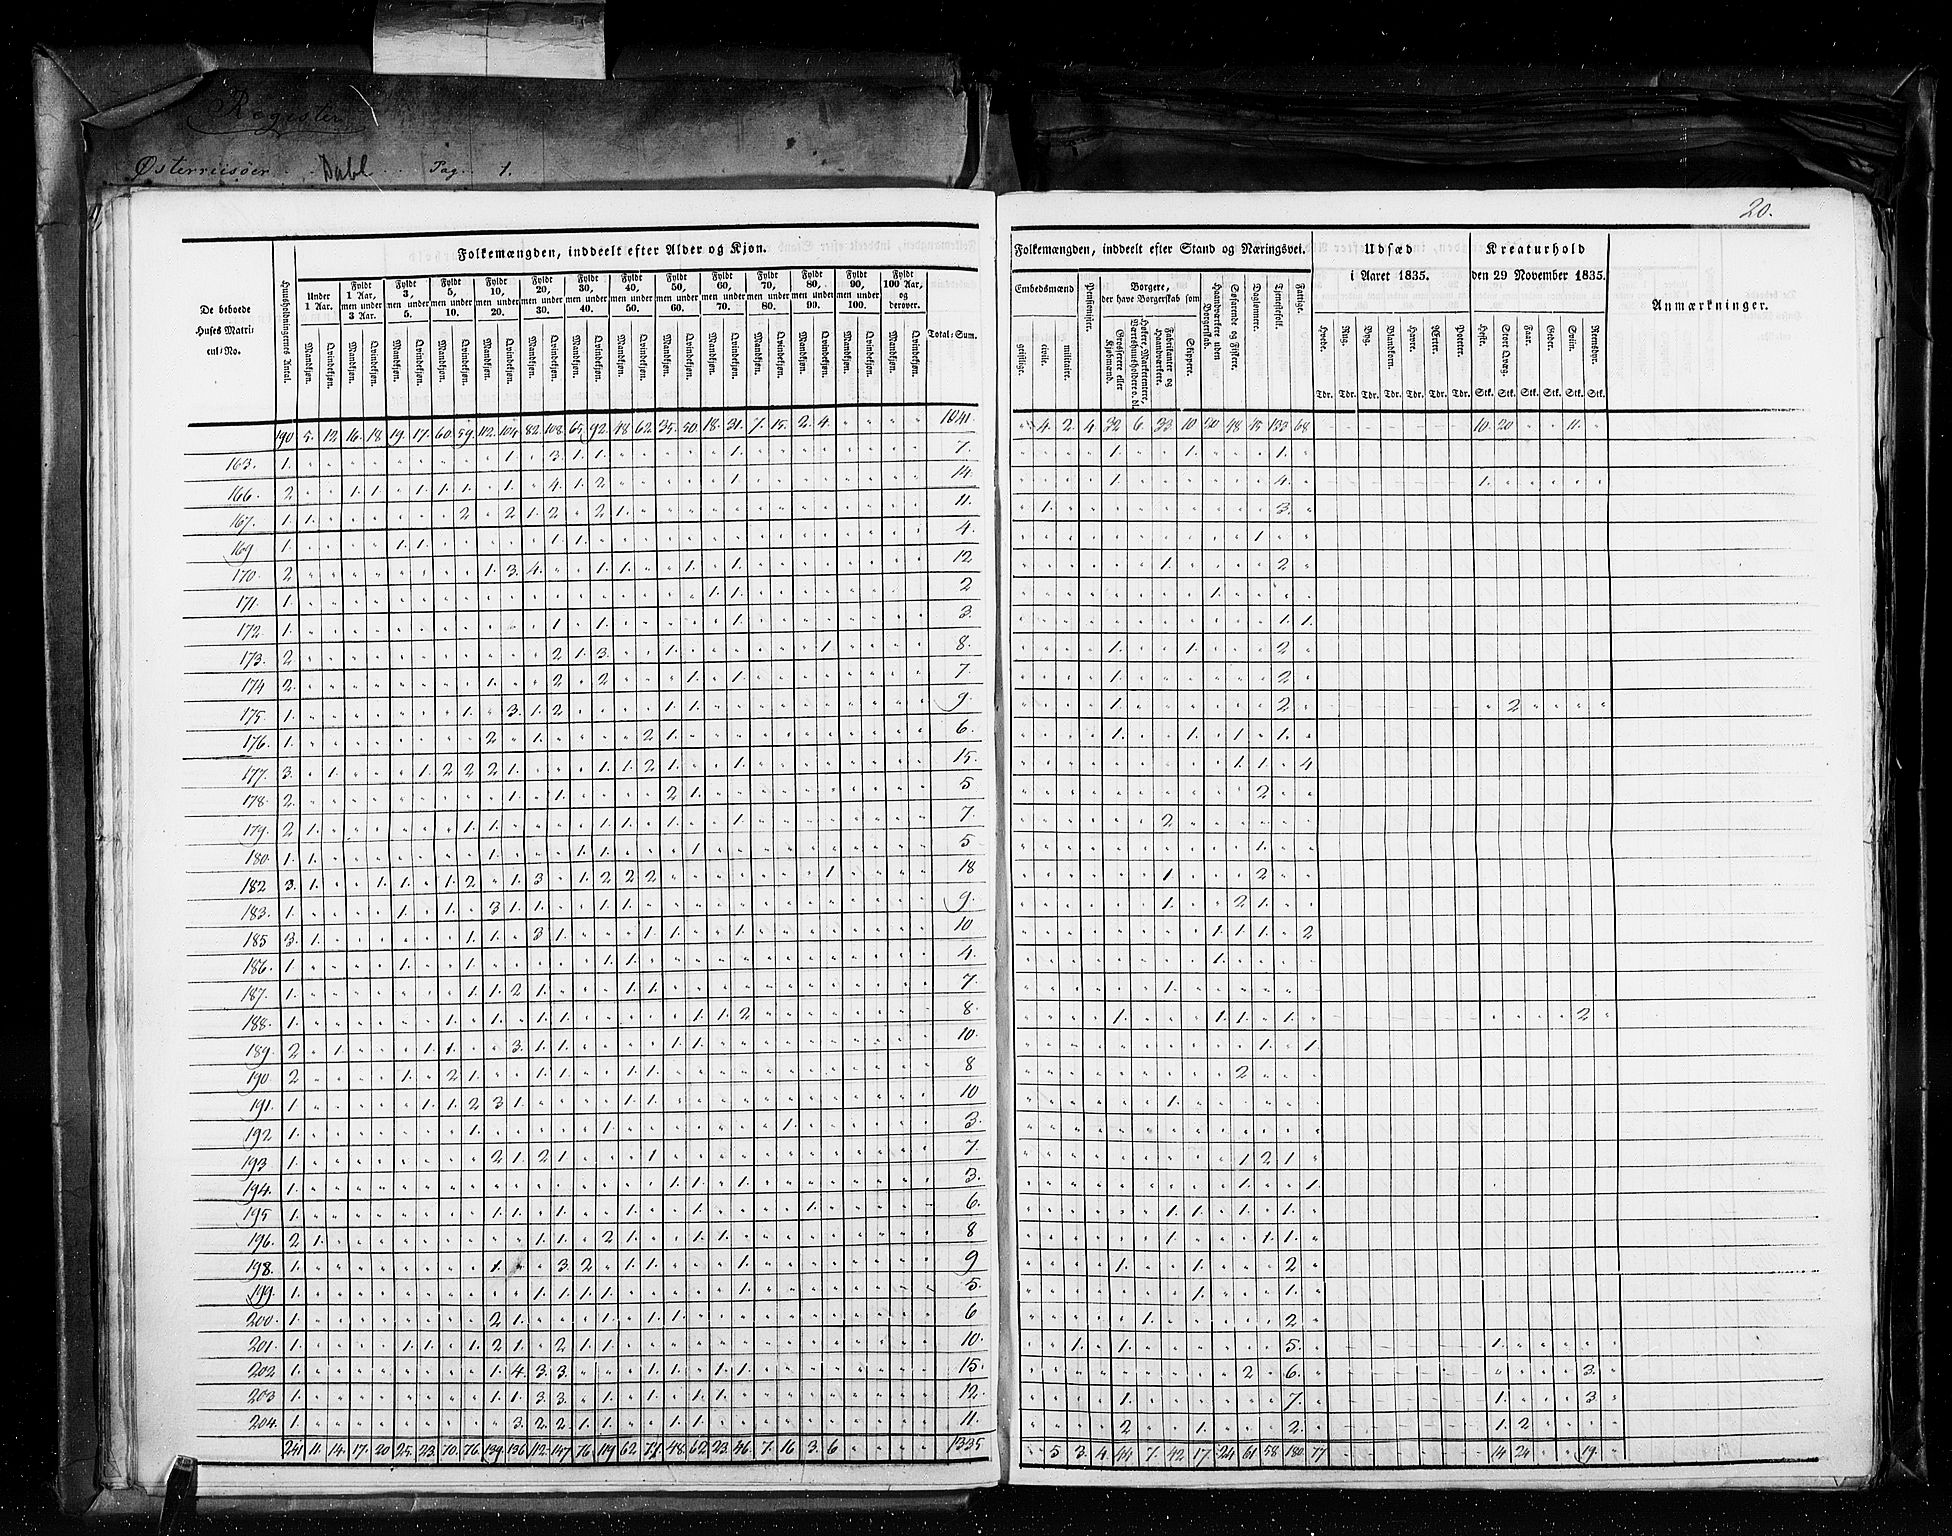 Register
Østerriisöer Dahl Pag. 1.
20.
Folkemængden, inddeelt efter Alder og Kjøn.
De beboede Huses Matricul-No.
Huusholdningernes Antal.
Under 1 Aar.
Fyldt 1 Aar, men under 3 Aar.
Fyldt 3, men under 5.
Fyldt 5, men under 10.
Fyldt 10, men under 20.
Fyldt 20, men under 30.
Fyldt 30, men under 40.
Fyldt 40, men under 50.
Fyldt 50, men under 60.
Fyldt 60, men under 70.
Fyldt 70, men under 80.
Fyldt 80, men under 90.
Fyldt 90, men under 100.
Fyldt 100 Aar, og derover.
Mandkjøn. Qvindekjøn.
Total-Sum.
Folkemængden, inddeelt efter Stand og Næringsvei.
Embedsmænd
geistlige. civile. militaire.
Pensionister.
Borgere, der have Borgerskab som
Grosserer eller Kjøbmænd.
Høkere, Marketentere, Værtshuusholdere o. dl.
Fabrikanter og Haandværkere.
Skippere.
Haandværkere uden Borgerskab.
Søfarende og Fiskere.
Dagslønnere.
Tjenestefolk.
Fattige.
Udsæd i Aaret 1835.
Hvede. Rug. Byg. Blankorn. Havre. Ærter. Poteter.
Tdr. Tdr. Tdr. Tdr. Tdr. Tdr. Tdr.
Kreaturhold den 29 November 1835.
Heste. Stort Qvæg. Faar. Geder. Sviin. Rensdyr.
Stk. Stk. Stk. Stk. Stk. Stk.
Anmærkninger.
190 5. 12. 16. 18. 19. 17. 60. 59. 112. 104. 82. 108. 65. 92. 48 62. 35. 50. 18. 31. 7. 15. 2. 4. 1041 4. 2. 4. 32 6. 33 10 20 48 45 133 68 10. 20 11.
163. 1. 1. 3. 1. 1. 1. 7. 1. 1. 1.
166. 2 1. 1. 1. 1. 1. 1. 4. 1. 2 1. 14. 1. 4. 1.
167. 1. 1. 2 2 1. 2 2 1. 11. 1. 3.
169 1. 1. 1. 1. 1. 4. 1.
170. 2 1. 3. 4. 1. 1. 1. 1. 12 1. 2
171. 1. 1. 1. 2 1.
172. 1. 1. 1. 1. 3. 1. 1.
173. 2 2 1. 3. 1. 1 8. 1. 1. 2
174 2. 1. 2 2 1. 1. 7. 1. 2
175. 1. 1. 3. 1. 2 1. 1. 9 1. 2 2
176. 1. 2 1. 2 1. 6. 1. 1. 1. 1.
177. 3. 1. 1. 2 2 2 1. 1. 1. 2 1. 1. 15. 1. 1. 4
178. 2. 1. 1. 2 1. 5 2
179. 2 1. 1. 1. 1. 1. 1. 1. 7. 2
180. 1. 1. 1. 1. 1. 1. 5 1.
182 3. 1. 1. 1. 1. 2 1. 3 1. 2 2 2 1. 18 1. 2
183. 1. 1. 1. 3 1. 1. 1. 1. 9. 1. 2 1.
185 3. 1. 1. 1. 3 1. 1. 1. 1. 10 1. 1. 1. 2
186. 1. 1. 1. 1. 1. 4. 1.
187. 1. 1. 1. 2 1. 1. 1. 7. 1.
188. 1. 1. 1. 1. 1. 1. 1. 2 8. 1. 1. 1. 1. 2
189. 2 1. 1. 1. 3. 1. 1. 1. 1. 10. 1. 1.
190 2 1. 2 1. 1. 1. 1. 1. 8 2
191. 1. 1. 1. 2 3 1. 1. 1. 10 1.
192 1. 1. 1. 1. 3.
193 1. 2 1. 2 1. 1 7. 1 2 1
194. 1. 1. 1. 1. 3. 1. 1.
195 1. 1. 1. 1. 1. 1. 1. 6. 1. 1. 1. 1.
196. 2 1. 1. 1. 2 1. 1. 1. 8 1. 1. 1.
198. 1. 1. 3 2 1. 1. 1. 9 1. 1. 2
199. 1. 1. 1. 1. 1. 1. 5. 1. 1.
200. 1. 2 1. 1. 1. 1. 6 1. 2
201. 1. 1. 1. 1. 2 1. 2 1. 1. 10. 1. 1. 5. 1.
202 1. 1. 4. 3. 3. 1. 1. 1. 1. 15. 2 6. 3.
203 1. 1. 1. 3 3. 1. 1. 1. 1. 12. 1. 7. 1. 3
204. 1. 3. 2. 2 1. 1. 1. 1. 11. 2 1. 2. 1. 2
241 11. 14. 17. 20 25. 23. 70. 76. 139. 136 112. 147 76. 119 62. 74. 48. 62 23. 46. 7. 16 3. 6 1335 5 3. 4. 44 7. 42 17. 24 61 58 180 77 14 24 19.